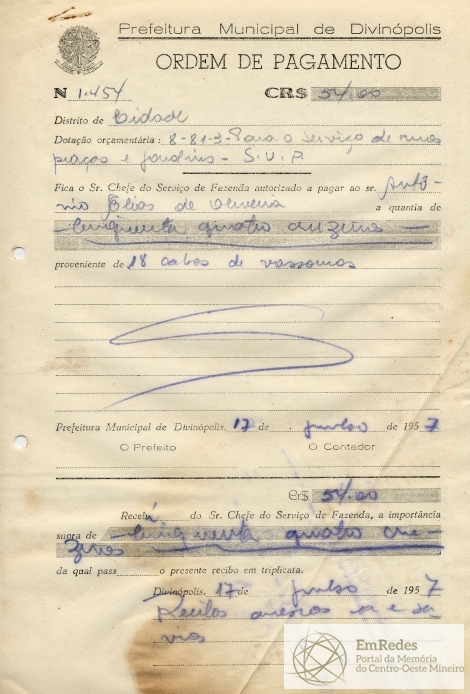 Prefeitura Municipal de Divinópolis
ORDEM DE PAGAMENTO
N 1.454 CR$ 54,00
Distrito de Cidade
Dotação orçamentária: 8-81-3-Para o serviço de ruas
praças e jardins - S.U.P.
Fica o Sr. Chefe do Serviço de Fazenda autorizado a pagar ao sr. Antô-
nio Elias de Oliveira a quantia de
- Cinquenta quatro cruzeiros -
proveniente de 18 cabos de vassouras
Prefeitura Municipal de Divinópolis, 17 de junho de 1957
O Prefeito O Contador
Cr$ 54,00
Recebi do Sr. Chefe do Serviço de Fazenda, a importância
supra de - Cinquenta quatro cru-
zeiros
da qual pass o presente recibo em triplicata.
Divinópolis, 17 de junho de 1957
Recibos anexos
EmRedes
Portal da Memória
do Centro-Oeste Mineiro